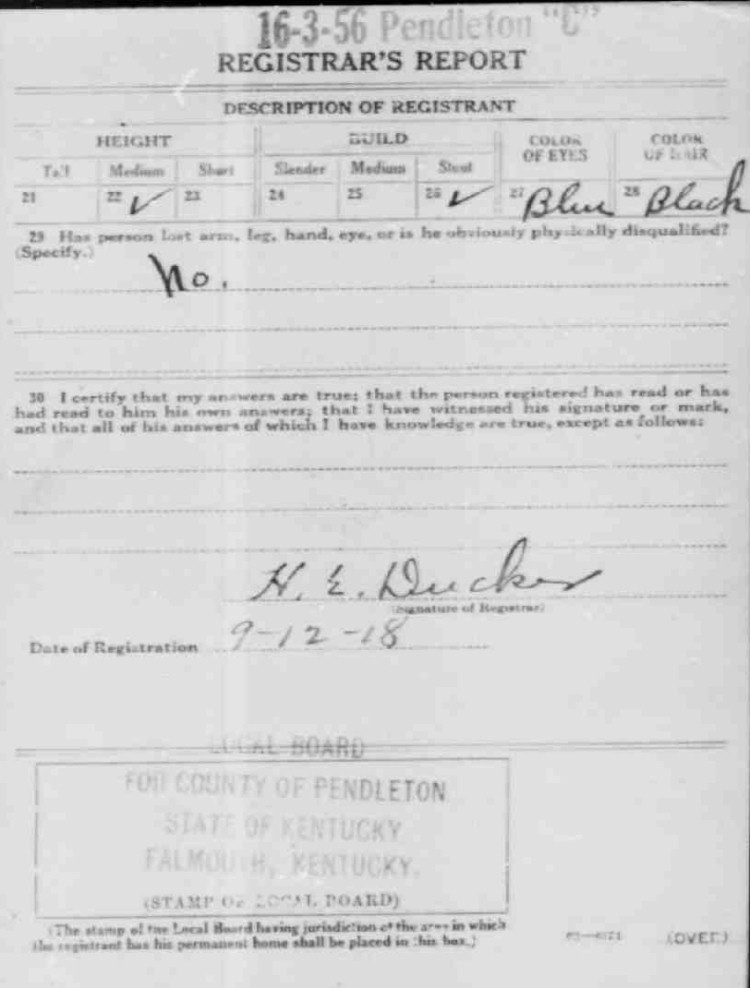 16-3-56 Pendleton "C"
REGISTRAR'S REPORT
DESCRIPTION OF REGISTRANT
HEIGHT BUILD COLOR OF EYES COLOR OF HAIR
Tall Medium Short Slender Medium Stout
21 22 ✓ 23 24 25 26 ✓ 27 Blue 28 Black
29 Has person lost arm, leg, hand, eye, or is he obviously physically disqualified?
(Specify.)
No.
30 I certify that my answers are true; that the person registered has read or has
had read to him his own answers; that I have witnessed his signature or mark,
and that all of his answers of which I have knowledge are true, except as follows:
H. E. Ducker
(Signature of Registrar)
Date of Registration 9-12-18
LOCAL BOARD
FOR COUNTY OF PENDLETON
STATE OF KENTUCKY
FALMOUTH, KENTUCKY.
(STAMP OF LOCAL BOARD)
(The stamp of the Local Board having jurisdiction of the area in which
the registrant has his permanent home shall be placed in this box.)
(OVER)